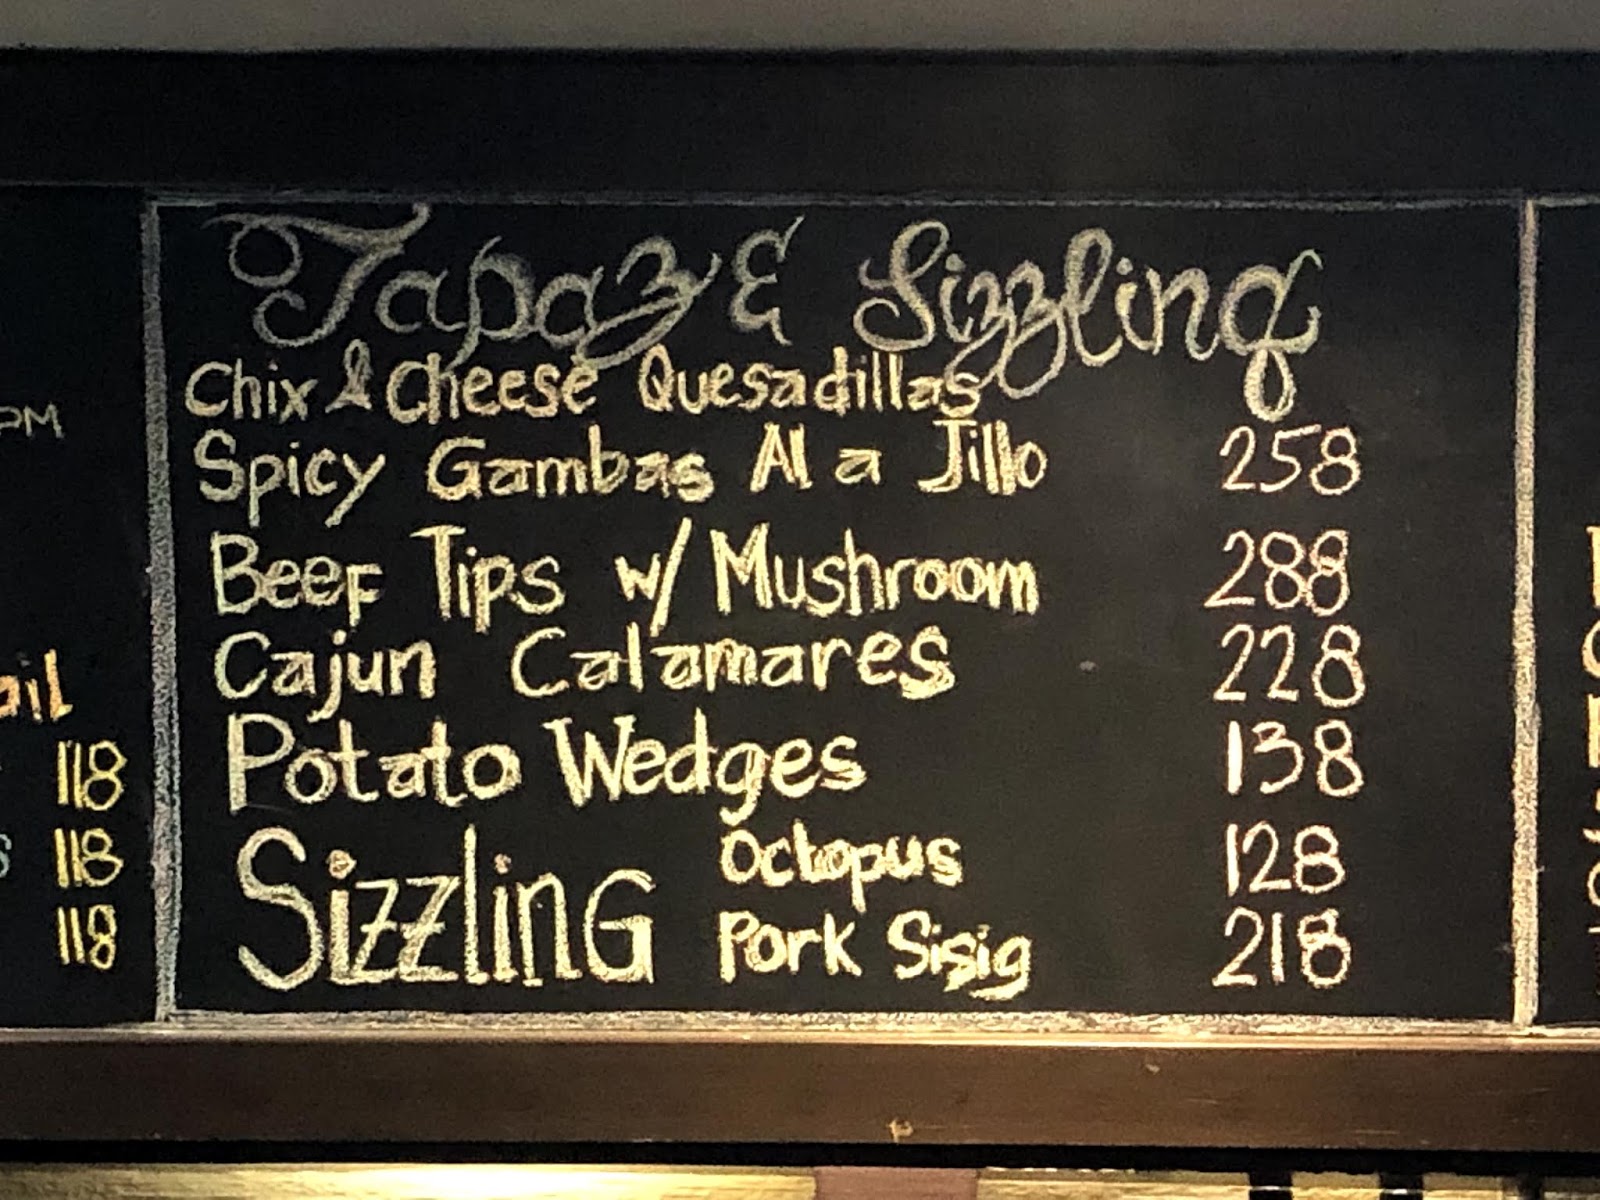 Tapaz & Sizzling
Chix & Cheese Quesadillas
Spicy Gambas Al a Jillo 258
Beef Tips w/ Mushroom 288
Cajun Calamares 228
Potato Wedges 138
Sizzling Octopus 128
Pork Sisig 218
PM
118
118
118